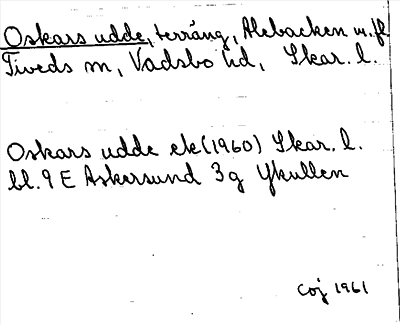 Oskars udde, terräng, Alebacken m.fl
Tiveds sn, Vadsbo hd, Skar. l.
Oskars udde ek (1960) Skar. l.
bl. 9 E Askersund 3g Ykullen
Coj 1961